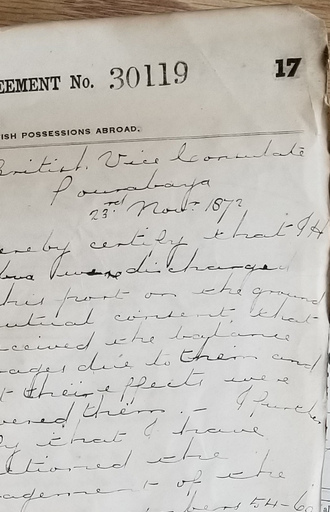 EEMENT No. 30119 17
ISH POSSESSIONS ABROAD.
British Vice Consulate
Sourabaya
23rd Novr. 187
ereby certify that
were discharged
his port on the ground
utual consent, that
ceived the balance
ages due to them and
t their effects were
vered them. - I further
y that I have
tioned the
agement of the
bers 54-6